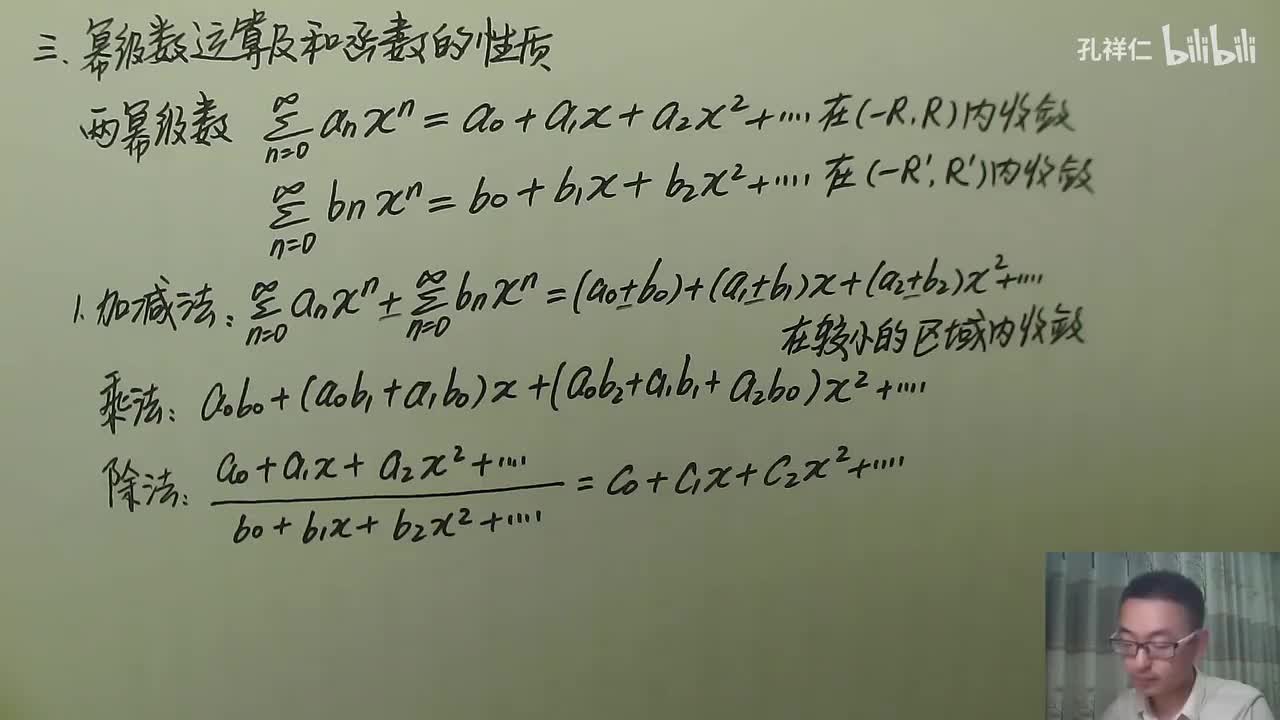 孔祥仁 bilibili
三、幂级数运算及和函数的性质
两幂级数 ∑_{n=0}^{∞} aₙxⁿ = a₀ + a₁x + a₂x² + ···· 在(-R, R)内收敛
∑_{n=0}^{∞} bₙxⁿ = b₀ + b₁x + b₂x² + ···· 在(-R', R')内收敛
1. 加减法: ∑_{n=0}^{∞} aₙxⁿ ± ∑_{n=0}^{∞} bₙxⁿ = (a₀±b₀) + (a₁±b₁)x + (a₂±b₂)x² + ····
在较小的区域内收敛
乘法: a₀b₀ + (a₀b₁ + a₁b₀)x + (a₀b₂ + a₁b₁ + a₂b₀)x² + ····
除法: (a₀ + a₁x + a₂x² + ····) / (b₀ + b₁x + b₂x² + ····) = c₀ + c₁x + c₂x² + ····